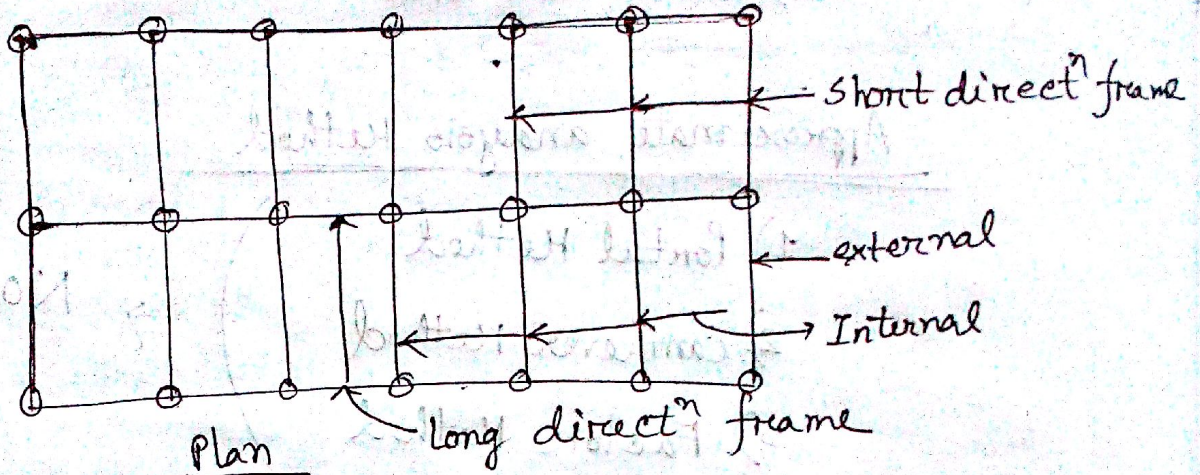 short directⁿ frame
external
Internal
long directⁿ frame
Plan